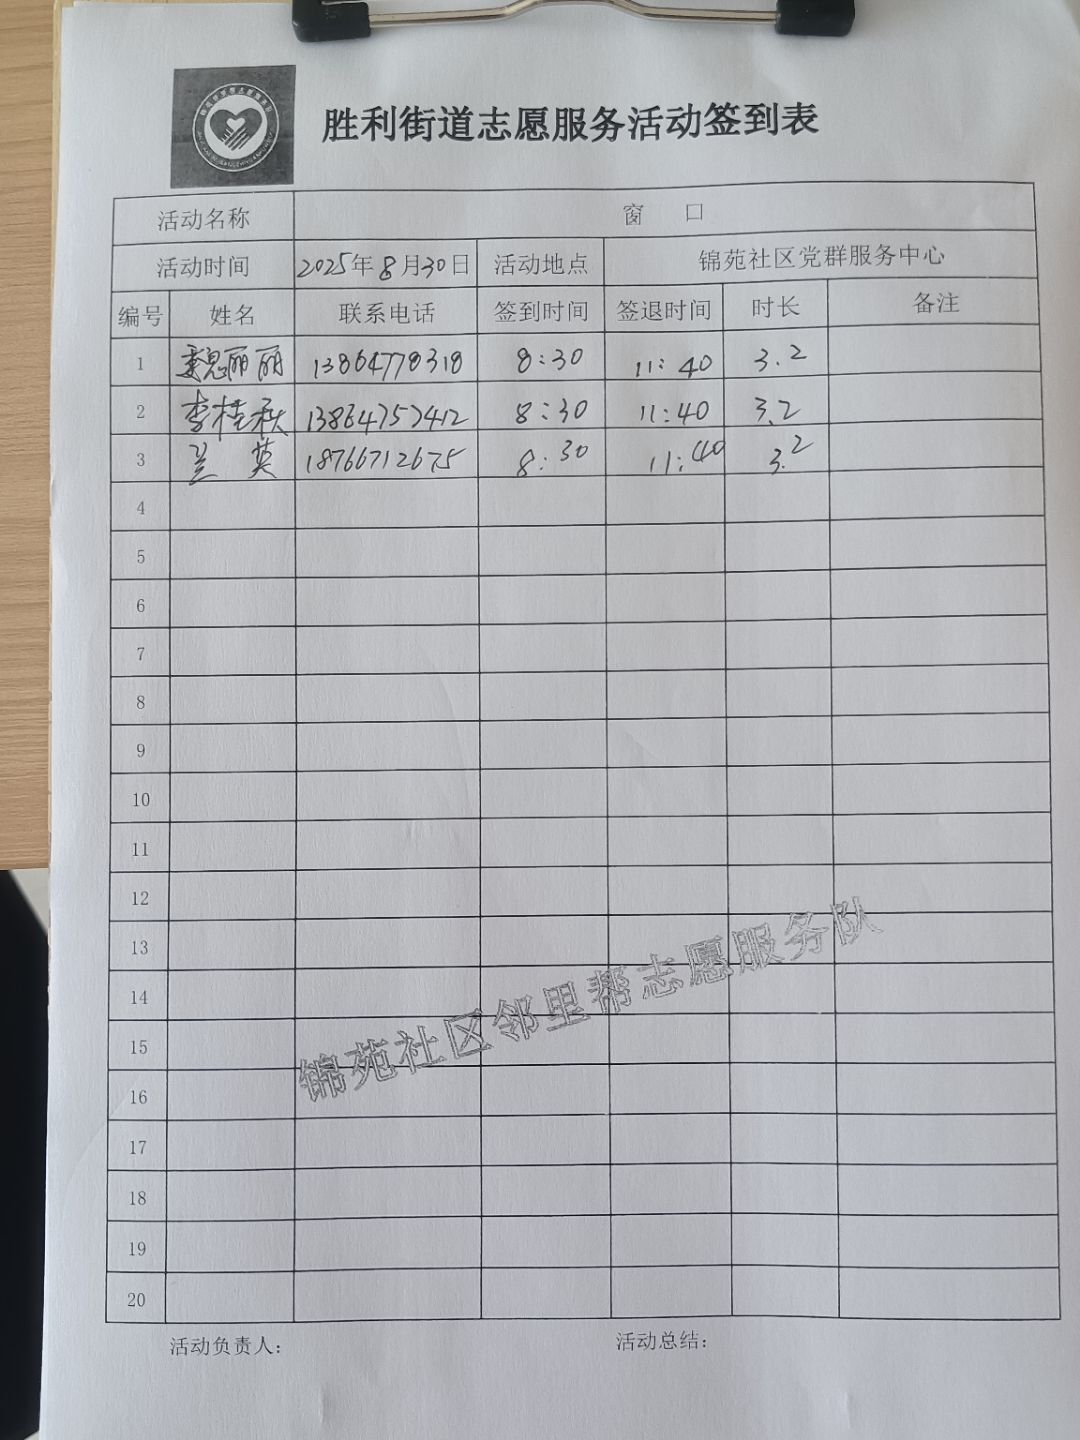 胜利街道志愿服务活动签到表
活动名称 窗 口
活动时间 2025年8月30日 活动地点 锦苑社区党群服务中心
编号 姓名 联系电话 签到时间 签退时间 时长 备注
1 魏丽丽 13864778318 8:30 11:40 3.2
2 李桂秋 13864757412 8:30 11:40 3.2
3 兰英 18766712675 8:30 11:40 3.2
4
5
6
7
8
9
10
11
12
13
14
15
16
17
18
19
20
锦苑社区邻里帮志愿服务队
活动负责人: 活动总结: